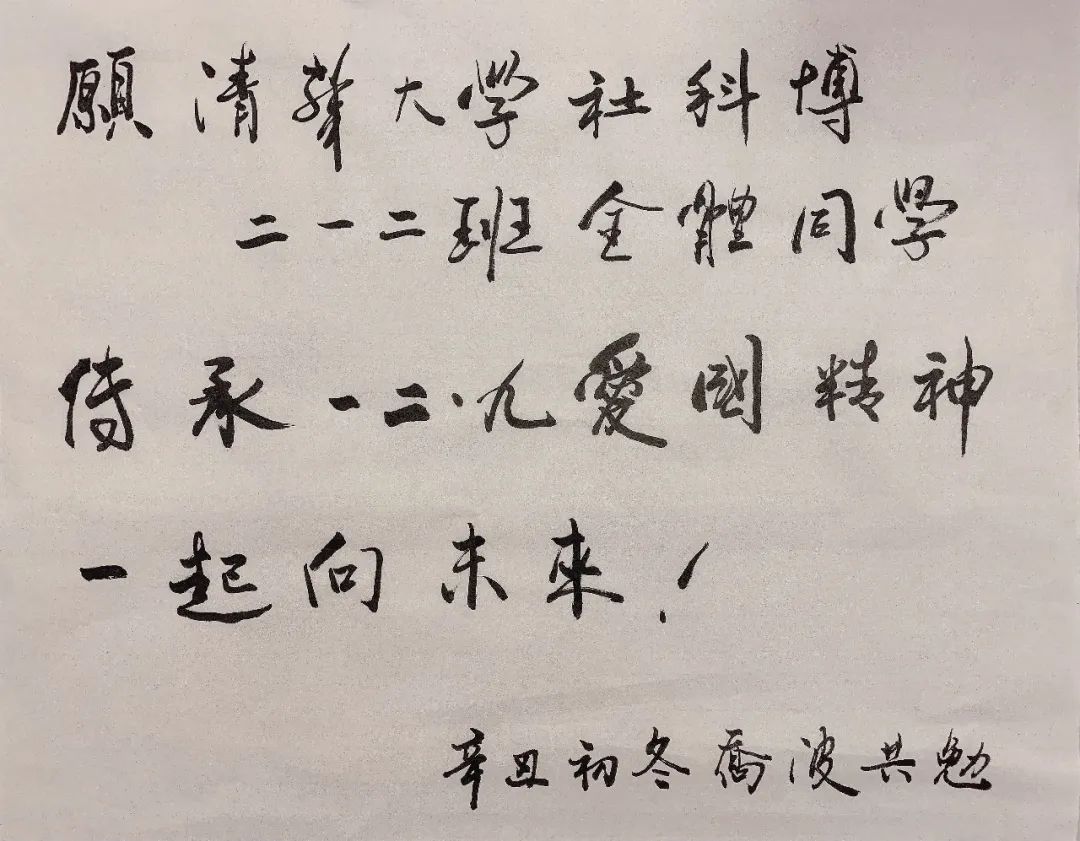 願清華大學社科博
二一二班全體同學
傳承一二·九愛國精神
一起向未來！
辛丑初冬喬波共勉